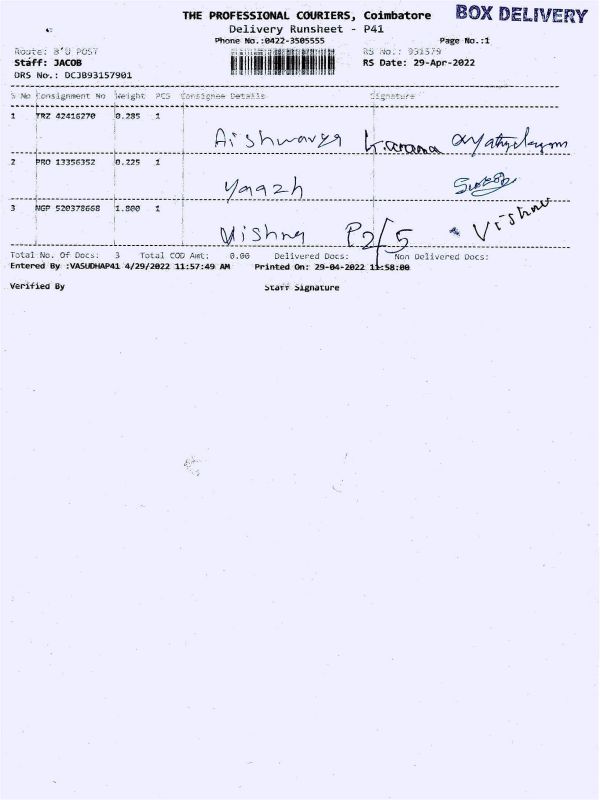 THE PROFESSIONAL COURIERS, Coimbatore BOX DELIVERY
Delivery Runsheet - P41
Phone No.:0422-3505555 Page No.:1
Route: B'D POST RS No.: 931579
Staff: JACOB RS Date: 29-Apr-2022
DRS No.: DCJB93157901
S No Consignment No Weight PCS Consignee Details Signature
1 TRZ 42416270 0.285 1
Aishwarya
2 PRO 13356352 0.225 1
Yaazh
3 NGP 520378668 1.800 1
Vishnu P2/5 Vishnu
Total No. Of Docs: 3 Total COD Amt: 0.00 Delivered Docs: Non Delivered Docs:
Entered By :VASUDHAP41 4/29/2022 11:57:49 AM Printed On: 29-04-2022 11:58:00
Verified By Staff Signature